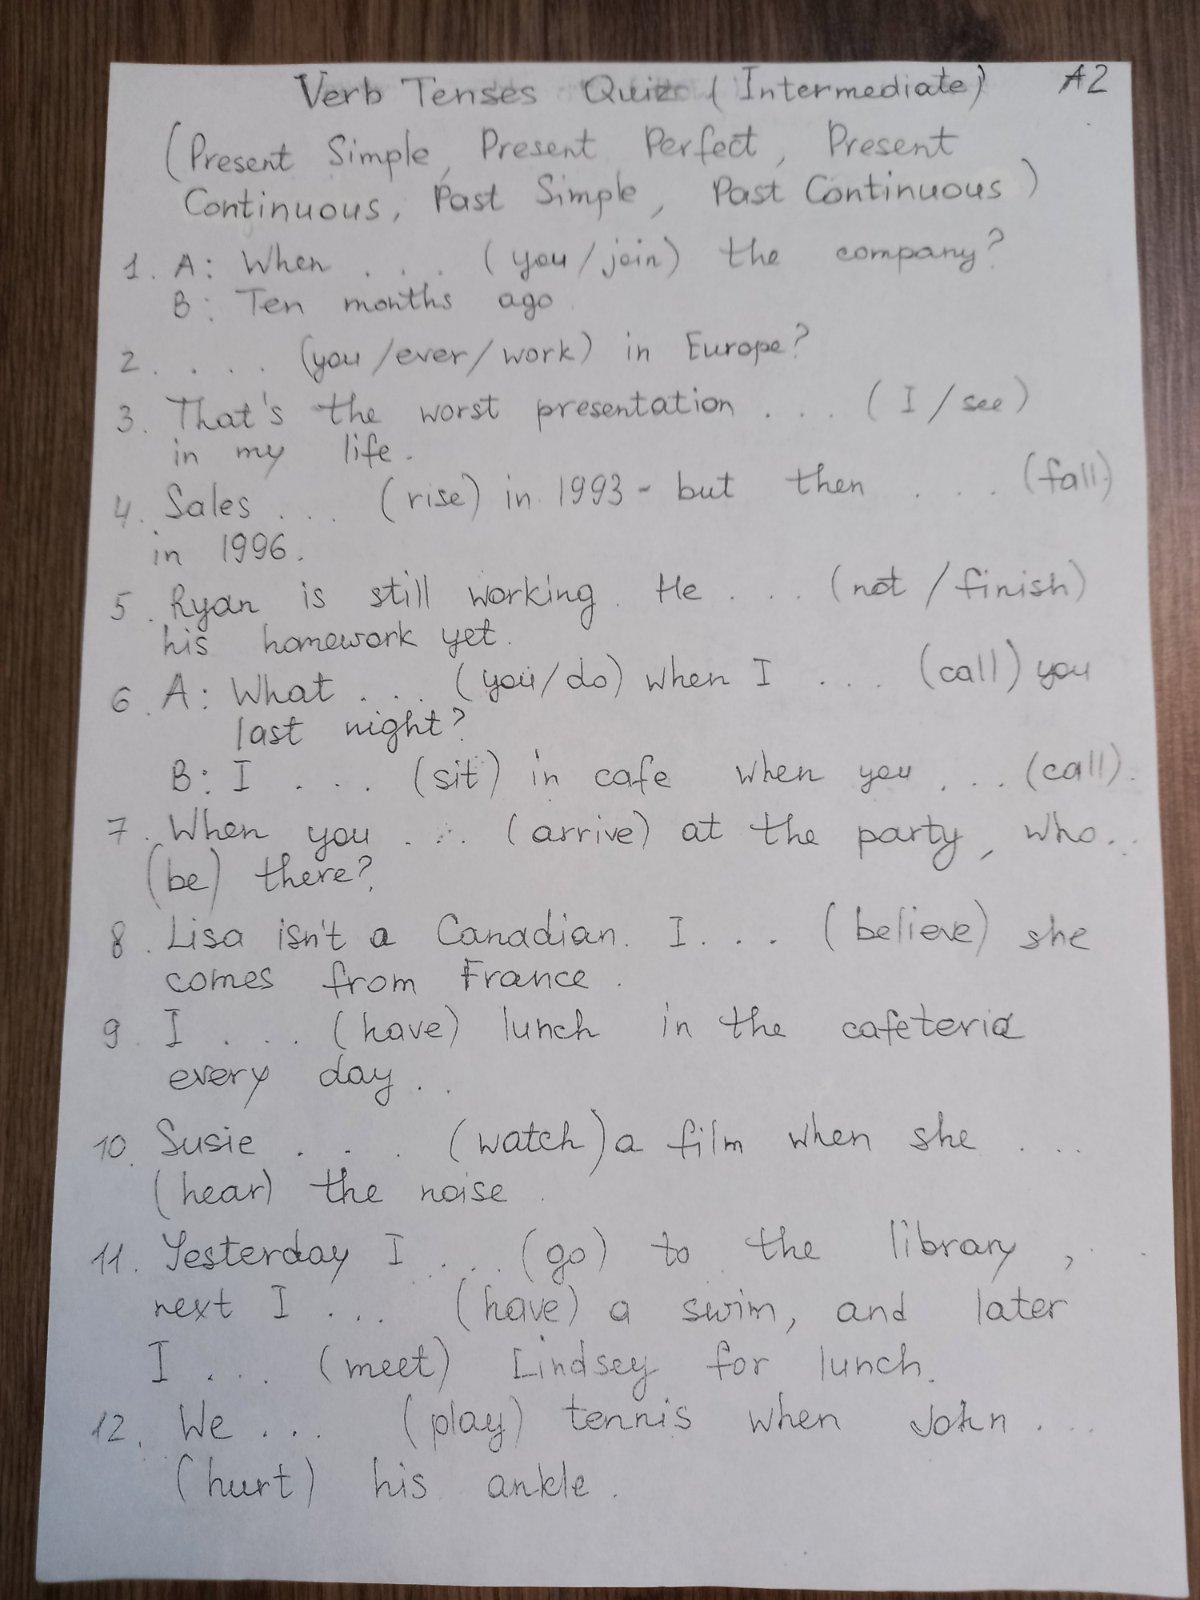 Verb Tenses Quiz (Intermediate) A2
(Present Simple, Present Perfect, Present
Continuous, Past Simple, Past Continuous)
1. A: When . . . (you/join) the company?
B: Ten months ago.
2. . . . . (you/ever/work) in Europe?
3. That's the worst presentation . . . (I/see)
in my life.
4. Sales . . . (rise) in 1993 - but then . . . (fall)
in 1996.
5. Ryan is still working. He . . . (not/finish)
his homework yet.
6. A: What . . . (you/do) when I . . . (call) you
last night?
B: I . . . (sit) in cafe when you . . . (call).
7. When you . . . (arrive) at the party, who . . .
(be) there?
8. Lisa isn't a Canadian. I . . . (believe) she
comes from France.
9. I . . . (have) lunch in the cafeteria
every day . .
10. Susie . . . (watch) a film when she . . .
(hear) the noise.
11. Yesterday I . . . (go) to the library,
next I . . . (have) a swim, and later
I . . . (meet) Lindsey for lunch.
12. We . . . (play) tennis when John . . .
(hurt) his ankle.